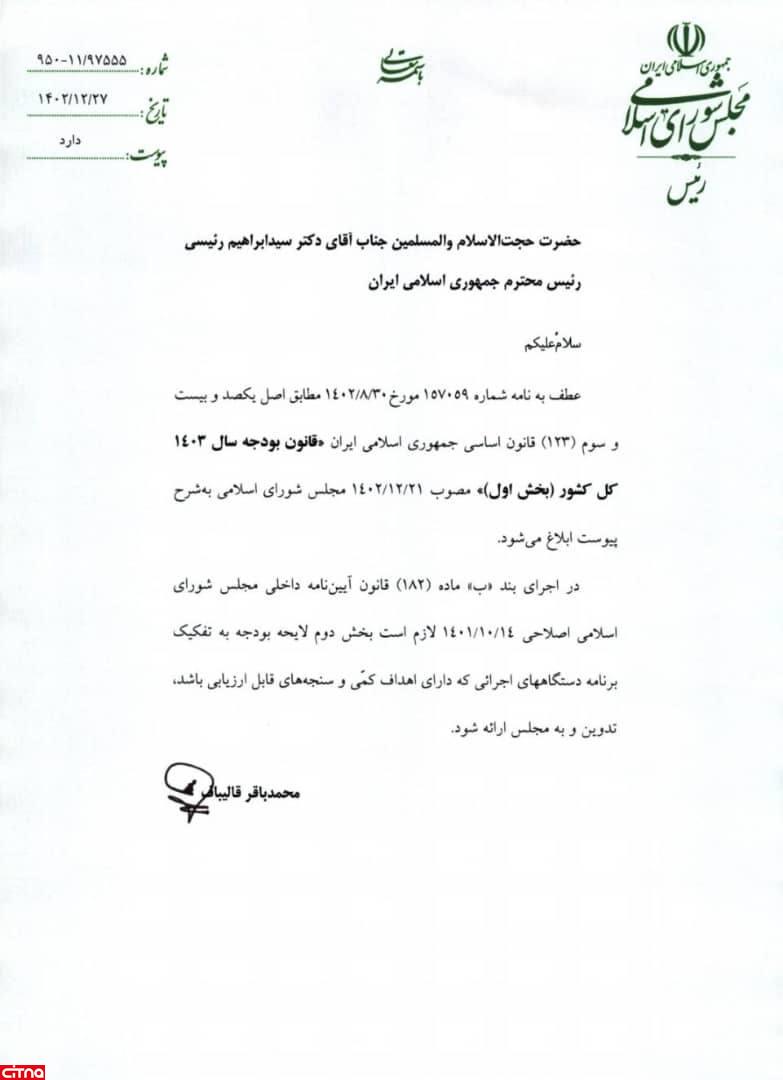 جمهوری اسلامی ایران
مجلس شورای اسلامی
رئیس
باسمه تعالی
شماره: ۹۵۰-۱۱/۹۷۵۵۵
تاریخ: ۱۴۰۲/۱۲/۲۷
پیوست: دارد
حضرت حجت‌الاسلام والمسلمین جناب آقای دکتر سیدابراهیم رئیسی
رئیس محترم جمهوری اسلامی ایران
سلامٌ‌علیکم
عطف به نامه شماره ۱۵۷۰۵۹ مورخ ۱۴۰۲/۸/۳۰ مطابق اصل یکصد و بیست
و سوم (۱۲۳) قانون اساسی جمهوری اسلامی ایران «قانون بودجه سال ۱۴۰۳
کل کشور (بخش اول)» مصوب ۱۴۰۲/۱۲/۲۱ مجلس شورای اسلامی به‌شرح
پیوست ابلاغ می‌شود.
در اجرای بند «ب» ماده (۱۸۲) قانون آیین‌نامه داخلی مجلس شورای
اسلامی اصلاحی ۱۴۰۱/۱۰/۱۴ لازم است بخش دوم لایحه بودجه به تفکیک
برنامه دستگاههای اجرائی که دارای اهداف کمّی و سنجه‌های قابل ارزیابی باشد،
تدوین و به مجلس ارائه شود.
محمدباقر قالیباف
citna